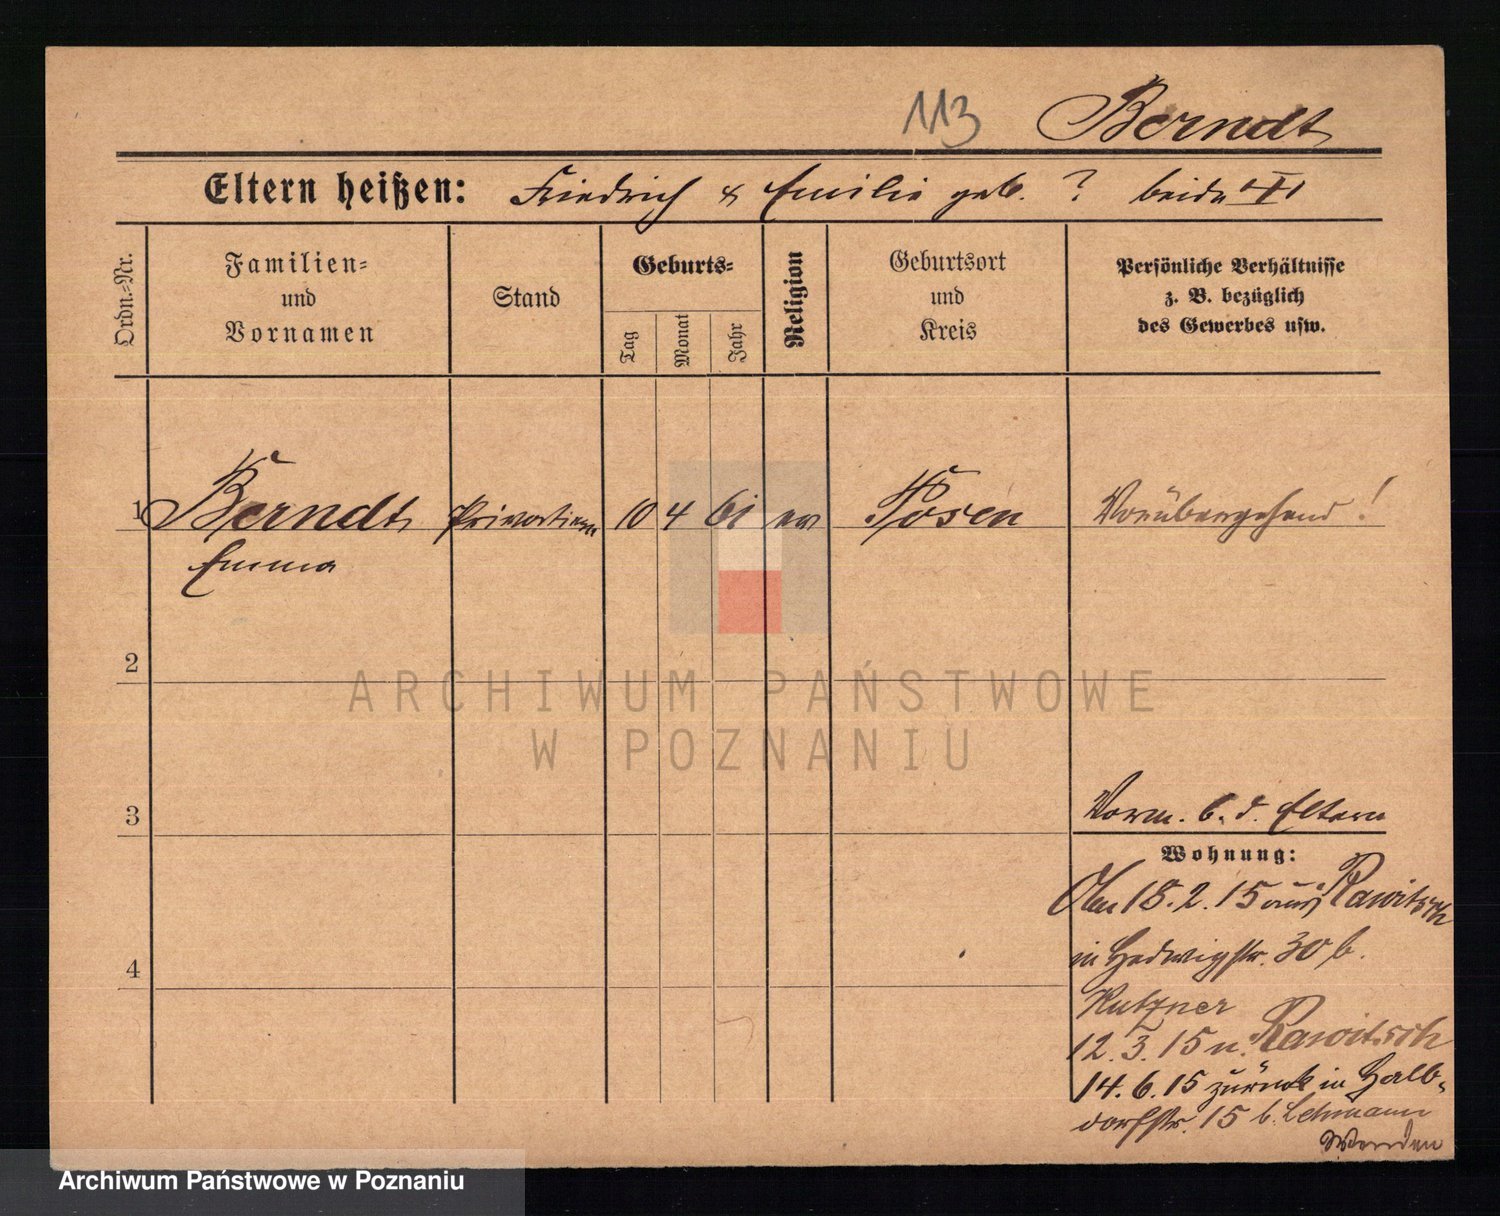 113 Berndt
Eltern heißen: Friedrich & Emilie geb. ? beide
Ordn.-Nr.
Familien-
und
Vornamen
Stand
Geburts-
Tag
Monat
Jahr
Religion
Geburtsort
und
Kreis
Persönliche Verhältnisse
z. B. bezüglich
des Gewerbes usw.
1 Berndt Privatiere 10 4 61 ev Posen Vorübergehend!
Emma
2
ARCHIWUM PAŃSTWOWE
W POZNANIU
3
Vorm. b. d. Eltern
Wohnung:
18.2.15 aus Rawitsch
in Hedwigstr. 30 b.
4
Kutzner
12.3.15 n. Rawitsch
14.6.15 zurück in Halb-
dorfstr. 15 b. Lehmann
Archiwum Państwowe w Poznaniu